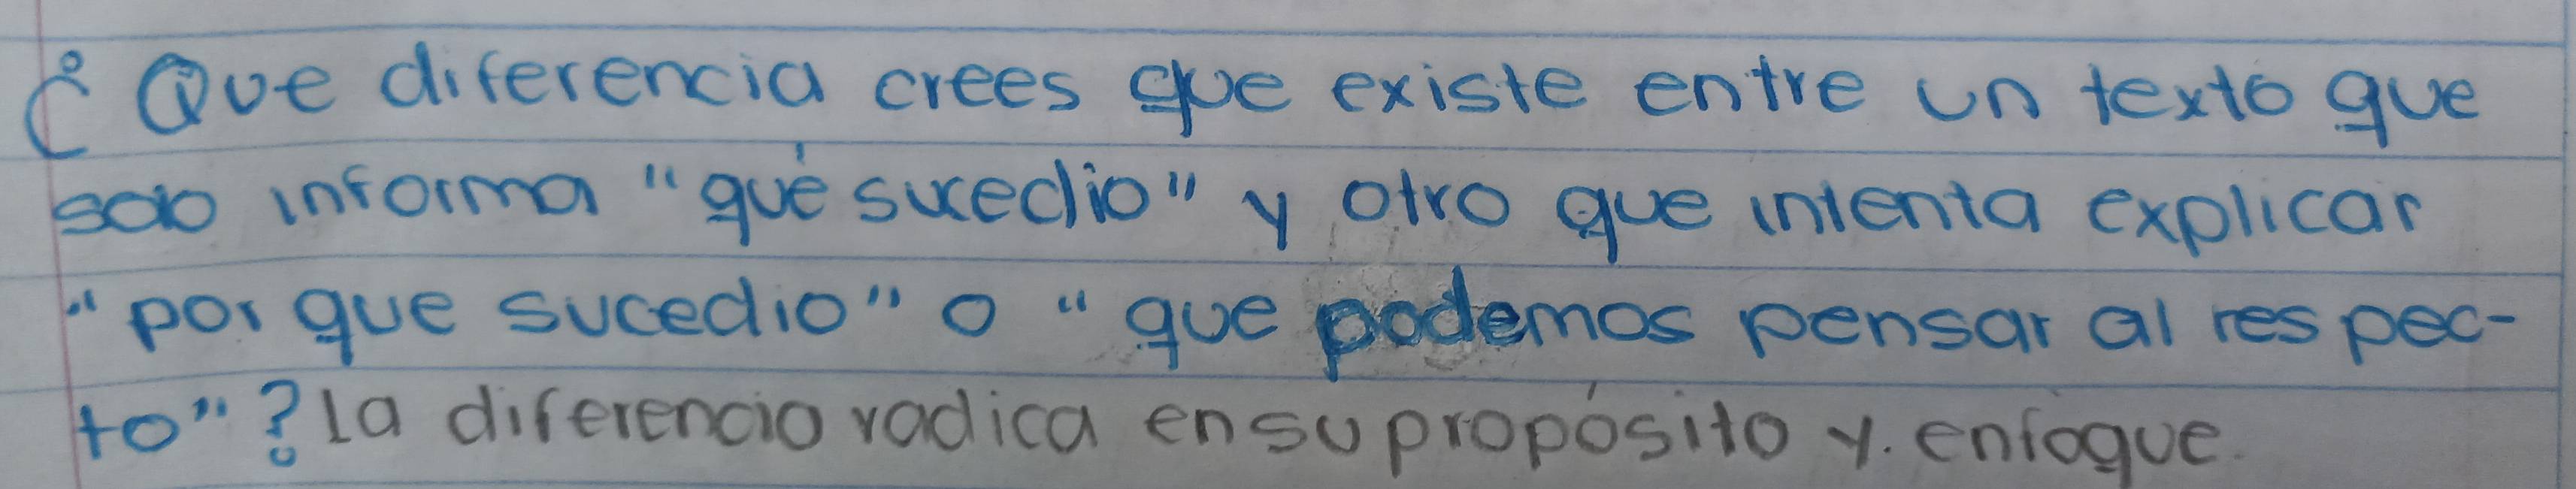 ¿Que diferencia crees que existe entre un texto que
solo informa "qué sucedio" y otro que intenta explicar
"por que sucedio" o "que podemos pensar al respec-
to"? La diferencia radica en su propósito y. enfoque.